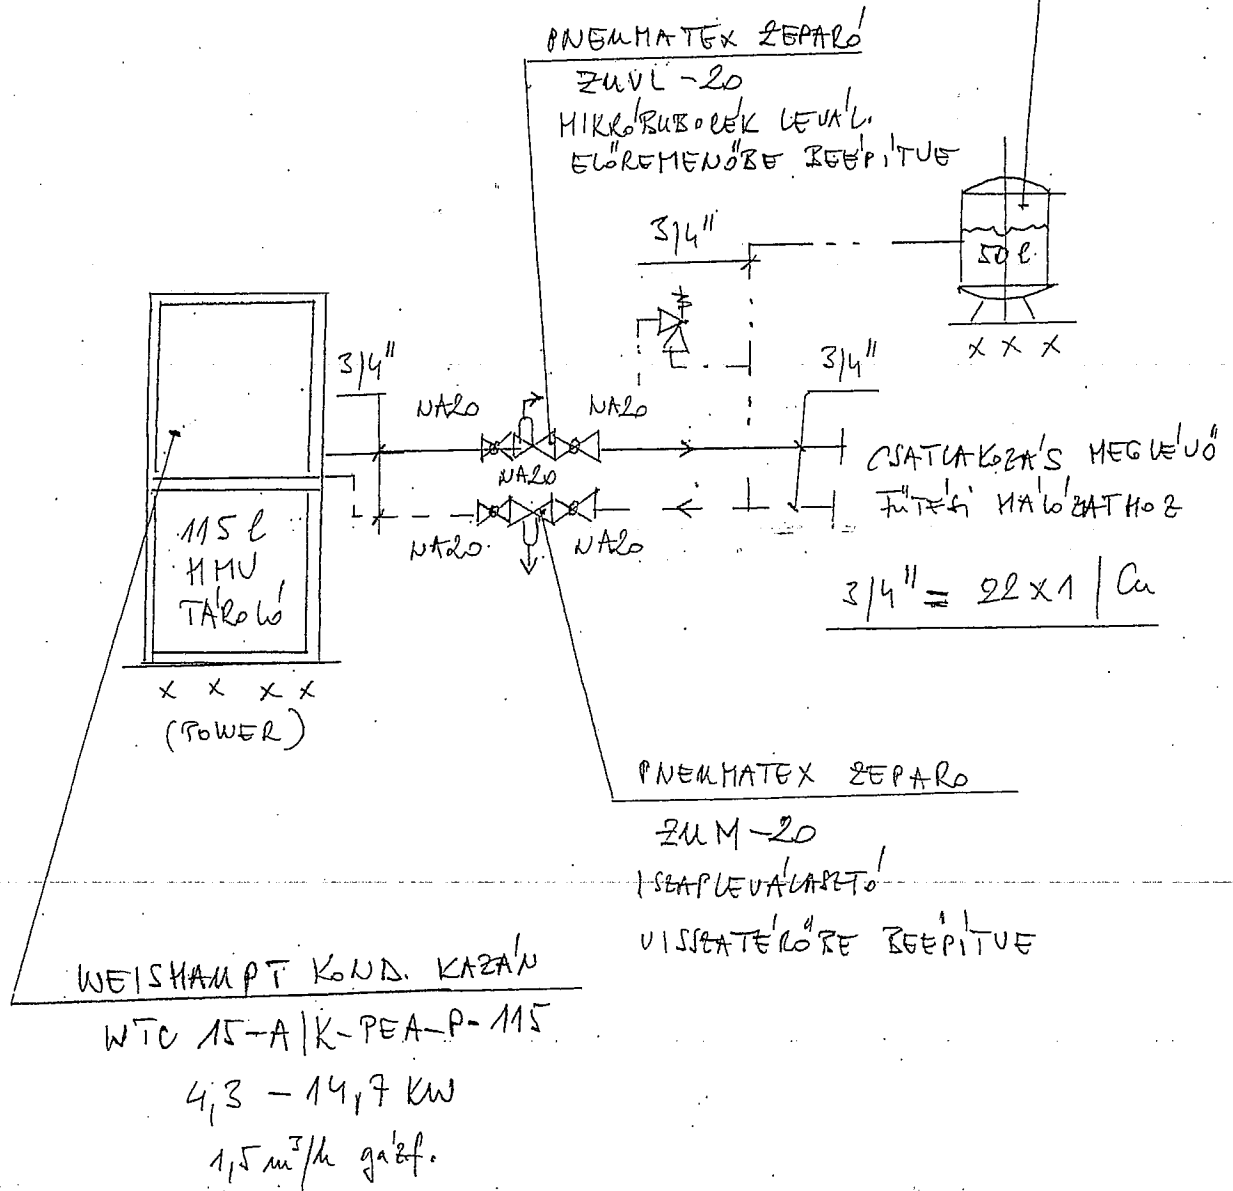 PNEUMATEX ZEPARÓ
ZUVL-20
MIKRÓBUBORÉK LEVÁL.
ELŐREMENŐBE BEÉPÍTVE
3/4"
50 l.
3/4"
3/4"
NA20
NA20
NA20
CSATLAKOZÁS MEGLÉVŐ
FŰTÉSI HÁLÓZATHOZ
NA20.
NA20
115 l
HMV
TÁROLÓ
3/4" = 22x1 | Cu
x x x
x x x x
(POWER)
PNEUMATEX ZEPARO
ZUM-20
ISZAPLEVÁLASZTÓ
VISSZATÉRŐBE BEÉPÍTVE
WEISHAUPT KOND. KAZÁN
WTC 15-A|K-PEA-P-115
4,3 - 14,7 KW
1,5 m³/h gázf.